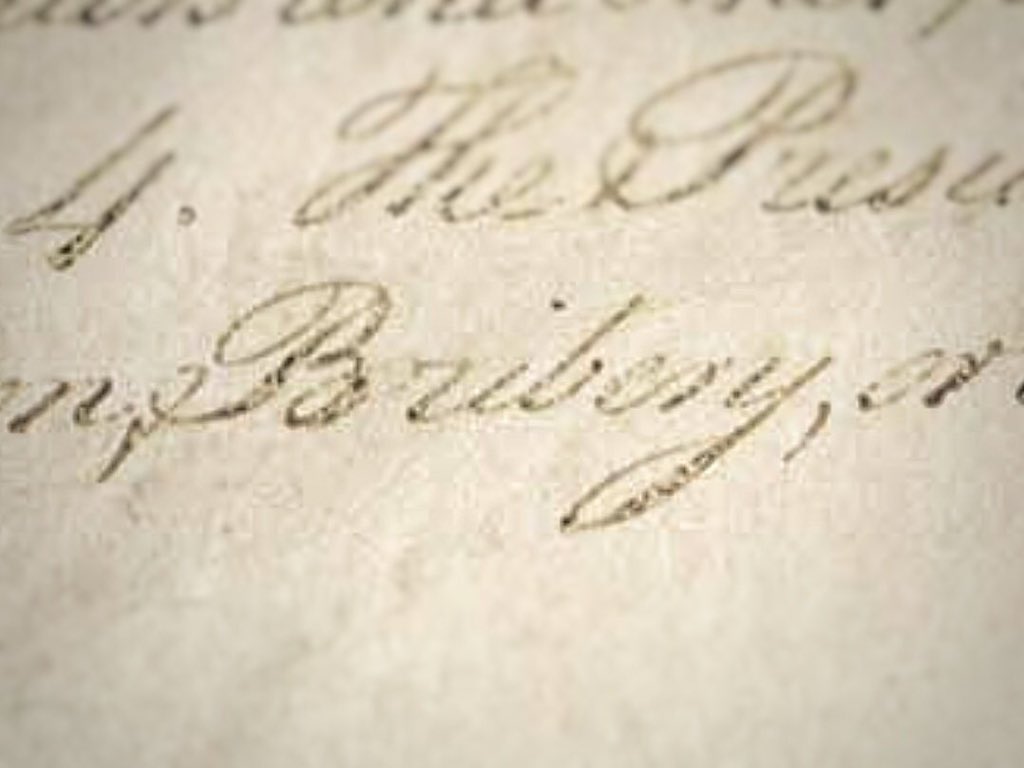 4. The Presi
n, Bribery, or